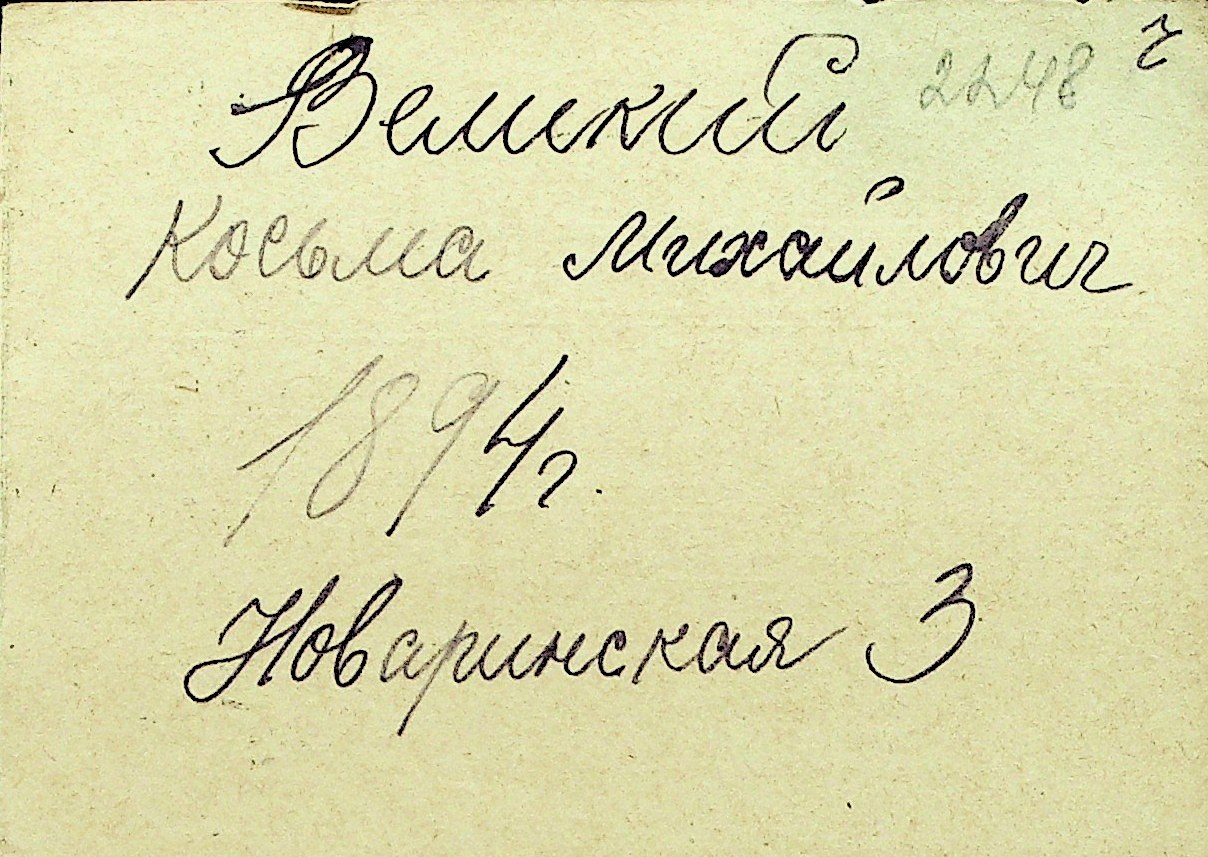 Великий 2248 г
Косьма Михайлович
1894 г.
Новаринская 3